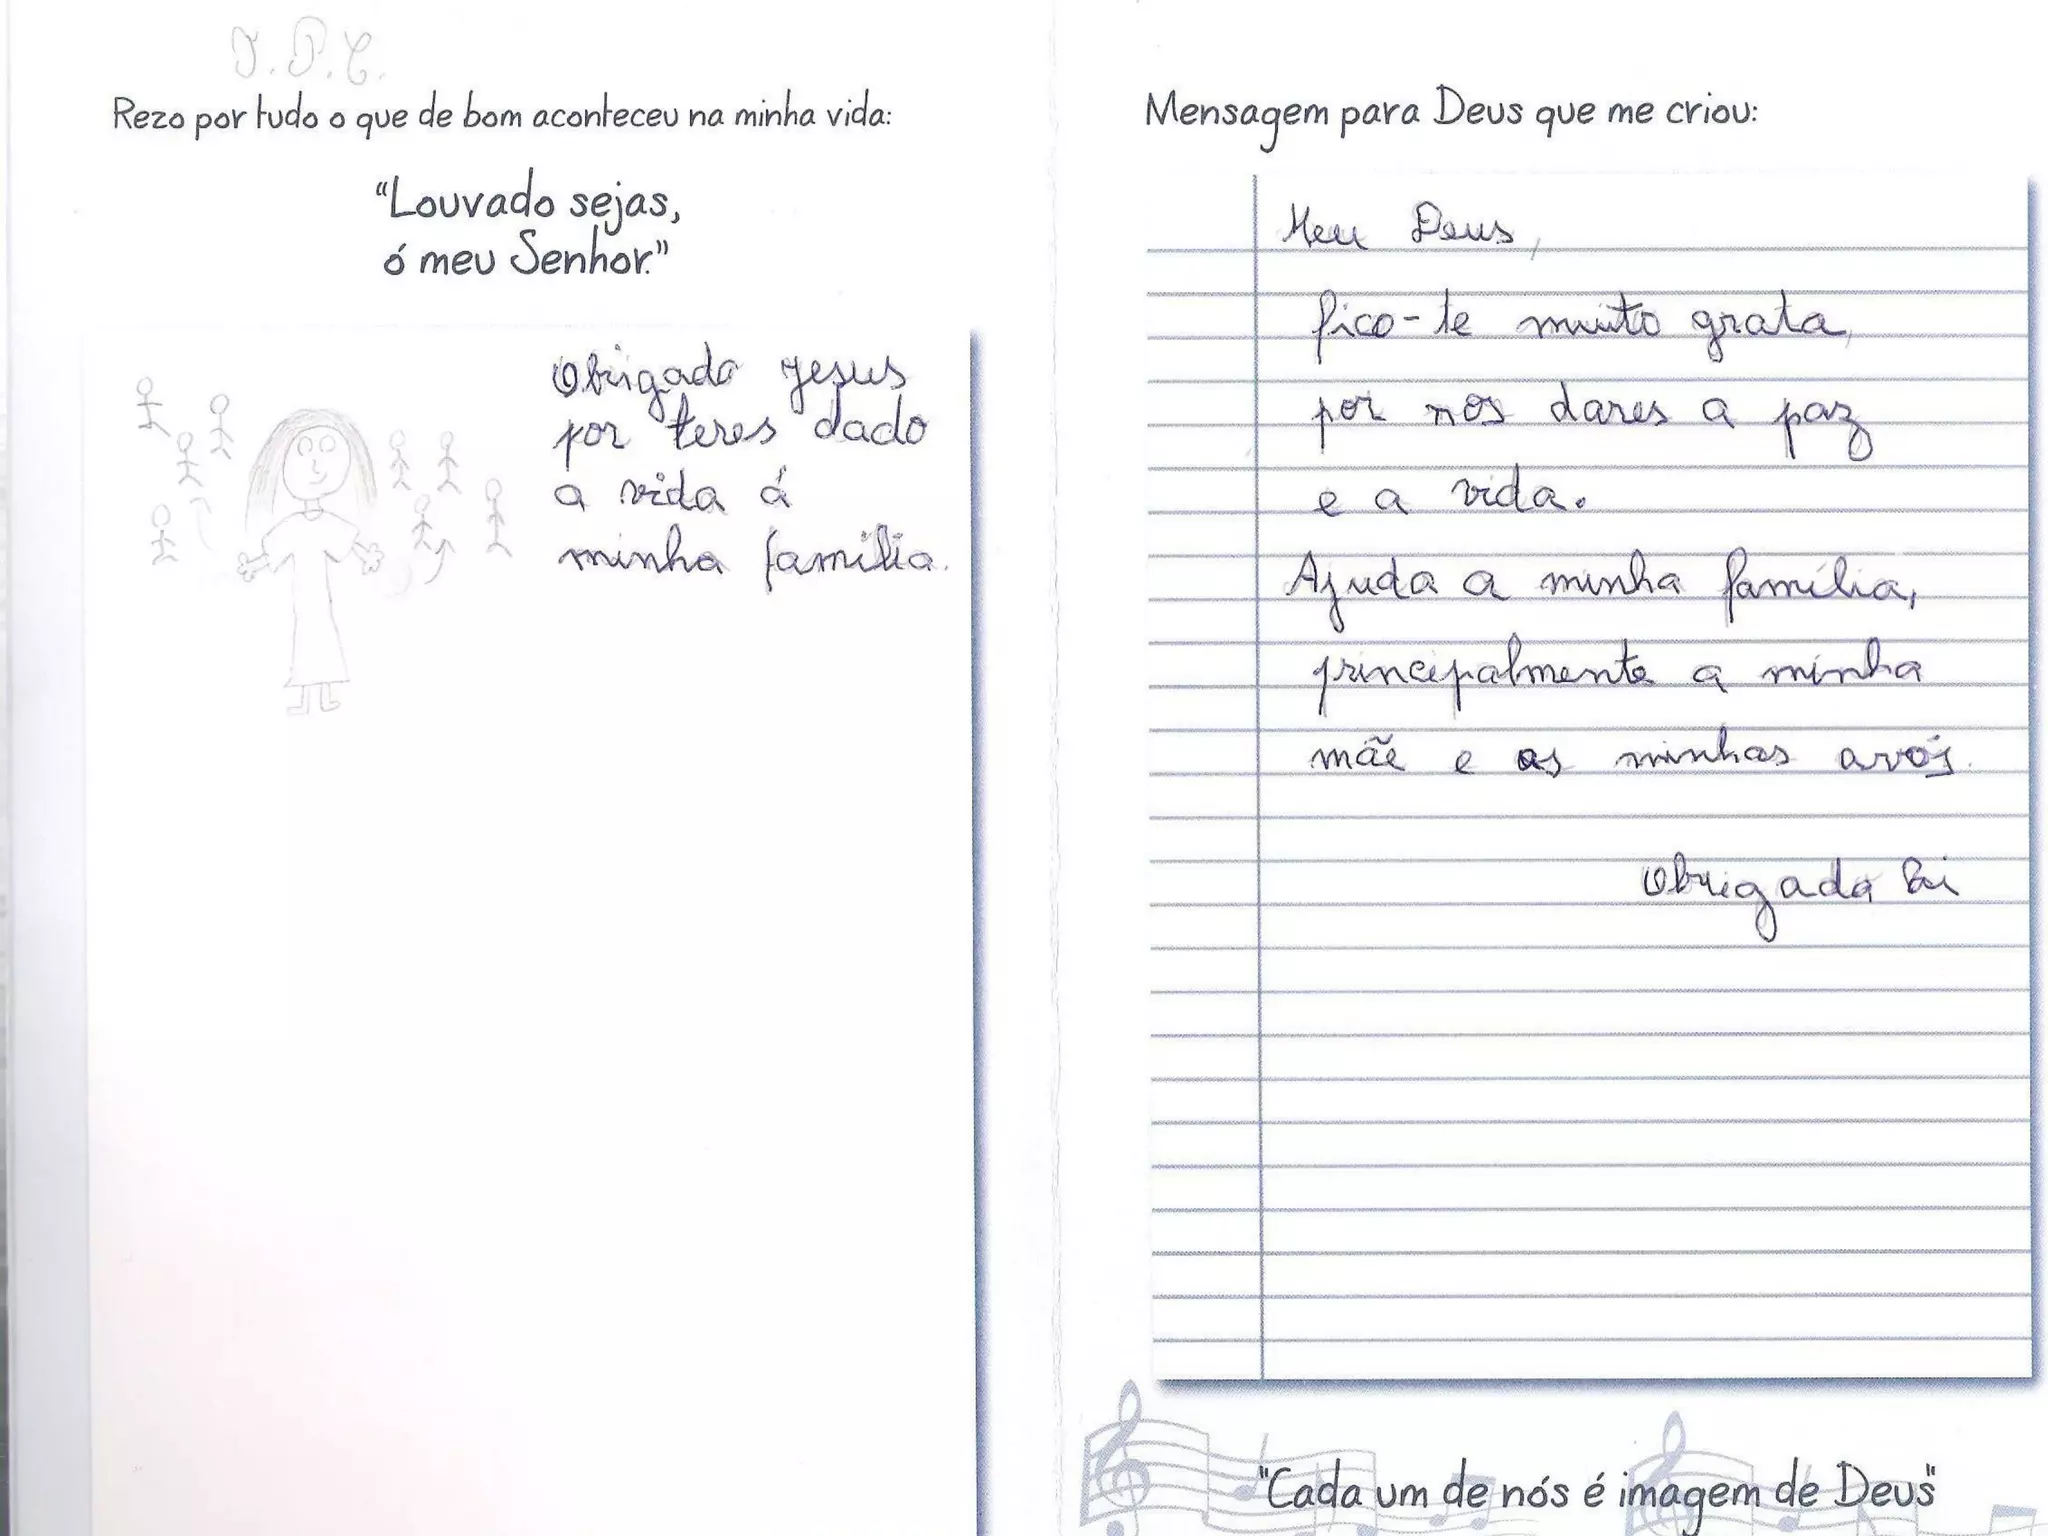 T.P.C.
Rezo por tudo o que de bom aconteceu na minha vida:
"Louvado sejas,
ó meu Senhor."
Obrigado Jesus
por teres dado
a vida á
minha familia.
Mensagem para Deus que me criou:
Meu Deus,
fico-te muito grata,
por nos dares a paz
e a vida.
Ajuda a minha família,
principalmente a minha
mãe e as minhas avós.
Obrigada Bi
"Cada um de nós é imagem de Deus"